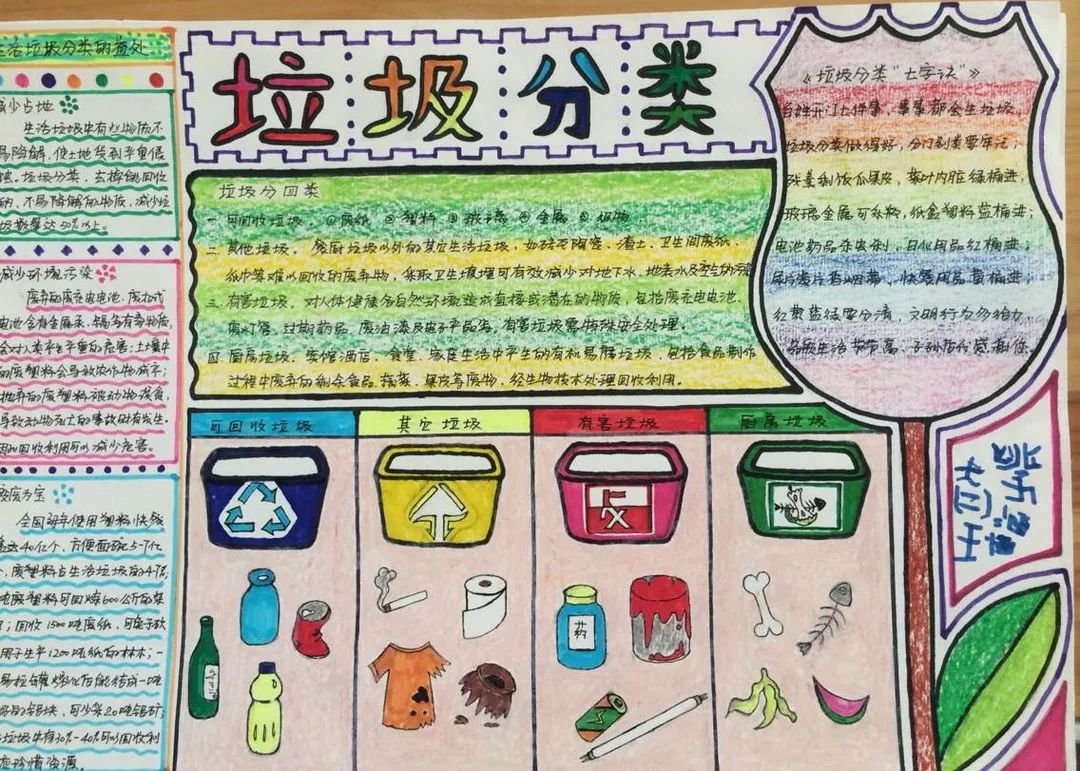 生活垃圾分类的益处
减少占地
生活垃圾中有些物质不
易降解,使土地受到严重侵
蚀。垃圾分类,去掉能回收
的、不易降解的物质,减少垃
圾数量达50%以上。
减少环境污染
废弃的废充电电池、废扣式
电池含有金属汞、镉等有毒物质,
会对人类产生严重的危害;土壤中
的废塑料会导致农作物减产;
抛弃的废塑料被动物误食,
导致动物死亡的事故时有发生。
因此回收利用可以减少危害。
变废为宝
全国每年使用塑料快餐
盒达40亿个,方便面碗5-7亿
废塑料占生活垃圾的4-7%
吨废塑料可回炼600公斤的柴
;回收1500吨废纸,可免于砍
用于生产1200吨纸的林木;一
易拉罐熔化后能结成一吨
好的铝块,可少采20吨铝矿;
垃圾中有30%-40%可以回收利
应珍惜资源。
垃圾分类
垃圾分四类
一.可回收垃圾 ①废纸 ②塑料 ③玻璃 ④金属 ⑤布物
二.其他垃圾、餐厨垃圾以外的其它生活垃圾,如砖瓦陶瓷、渣土、卫生间废纸、
纸巾等难以回收的废弃物,采取卫生填埋可有效减少对地下水、地表水及空气的污染
三.有害垃圾、对人体健康与自然环境造成直接或潜在的物质,包括废充电电池、
废灯管、过期药品、废油漆及电子产品等,有害垃圾需特殊安全处理。
四.厨房垃圾、宾馆酒店、食堂、家庭生活中产生的有机易腐垃圾,包括食品制作
过程中废弃的剩余食品、蔬菜、果皮等废物,经生物技术处理回收利用。
《垃圾分类“七字诀”》
百姓开门七件事,事事都会生垃圾,
垃圾分类做得好,分门别类要牢记;
残羹剩饭瓜果皮,菜叶内脏绿桶进,
玻璃金属可乐杯,纸盒塑料蓝桶进;
电池药品杀虫剂,日化用品红桶进;
尿片瓷片看烟蒂,快餐用品黄桶进;
红黄蓝绿要分清,文明行为多给力,
生活节节高,子孙后代感谢您。
可回收垃圾
其它垃圾
有害垃圾
厨房垃圾
药